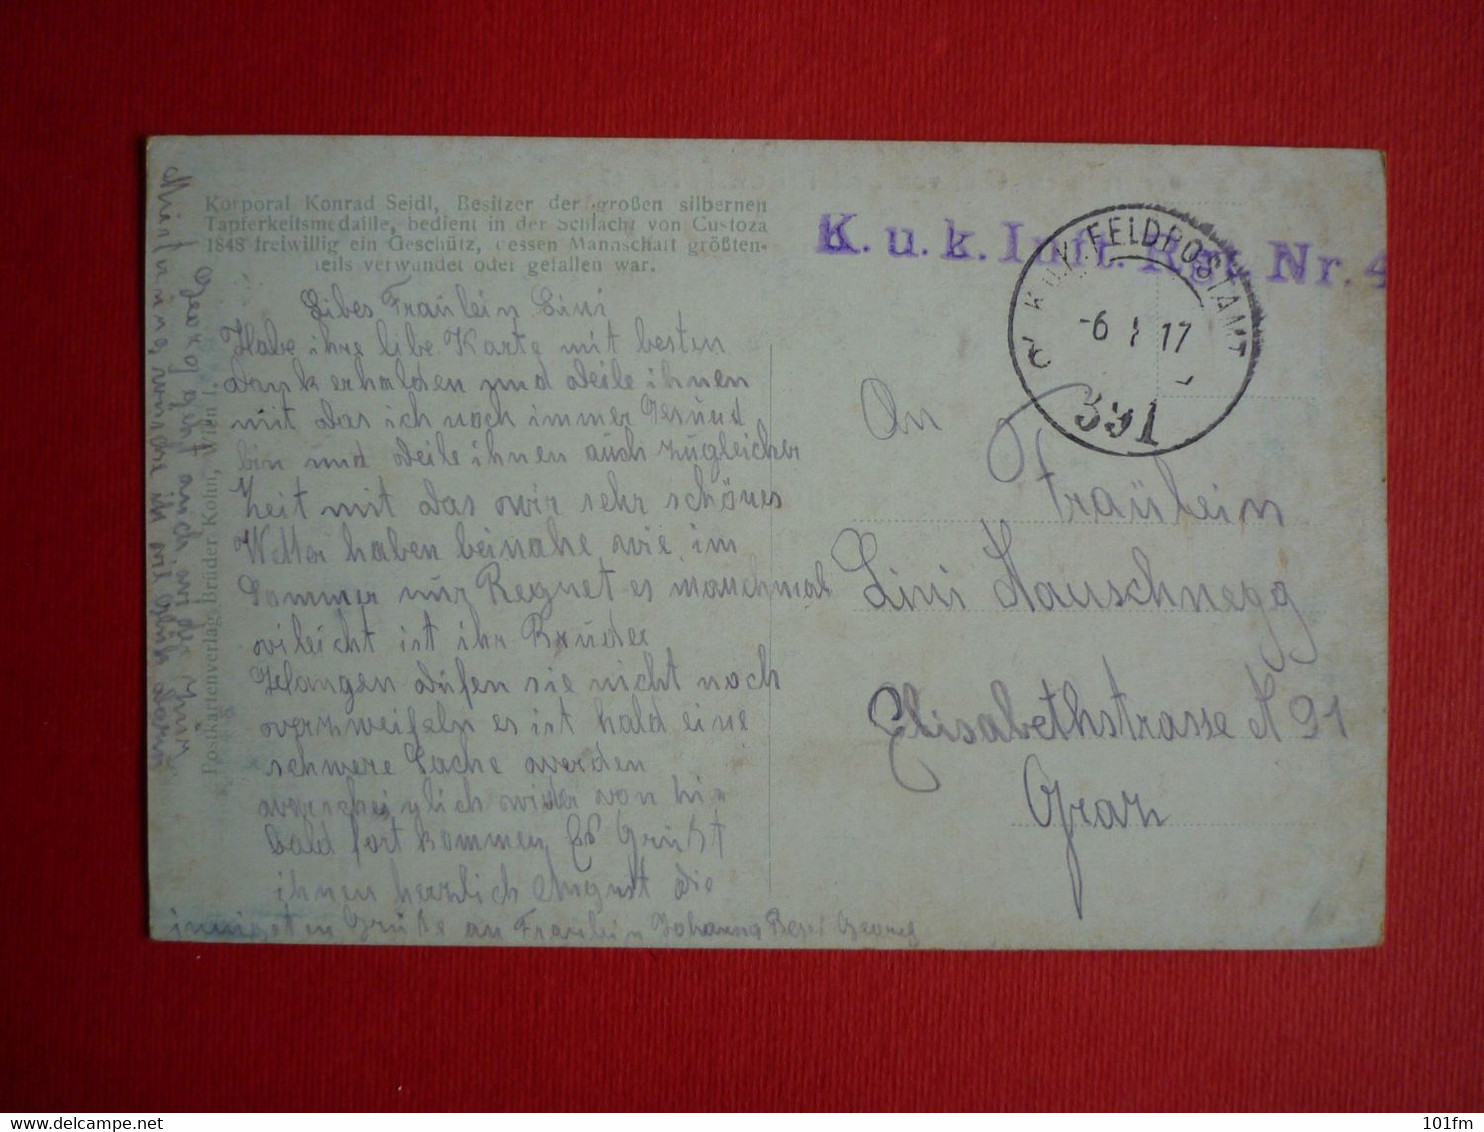 Korporal Konrad Seidl, Besitzer der großen silbernen
Tapferkeitsmedaille, bedient in der Schlacht von Custoza
1848 freiwillig ein Geschütz, dessen Mannschaft größten-
teils verwundet oder gefallen war.
Postkartenverlag Brüder Kohn, Wien I.
Libes Fraülein Lini
Habe ihre libe Karte mit besten
dank erhalden und deile ihnen
mit das ich noch immer Gesund
bin und deile ihnen auch zugleicher
Zeit mit das wir sehr schönes
Wetter haben beinahe wie im
Sommer nur Regnet es manchmal
vileicht ist ihr Bruder
düfen sie nicht noch
verzweifeln es ist hald eine
schwere Sache werden
warscheinlich wider von hir
bald fort kommen Es Grüßt
ihnen herzlich August die
innigsten Grüße an Fraulein Johanna
K. u. k. Inft. Rgt. Nr. 4
K.u.K. FELDPOSTAMT
-6 I 17
391
An
Fraülein
Lini Hauschnegg
Elisabethstrasse N 91
Graz
delcampe.net
101fm